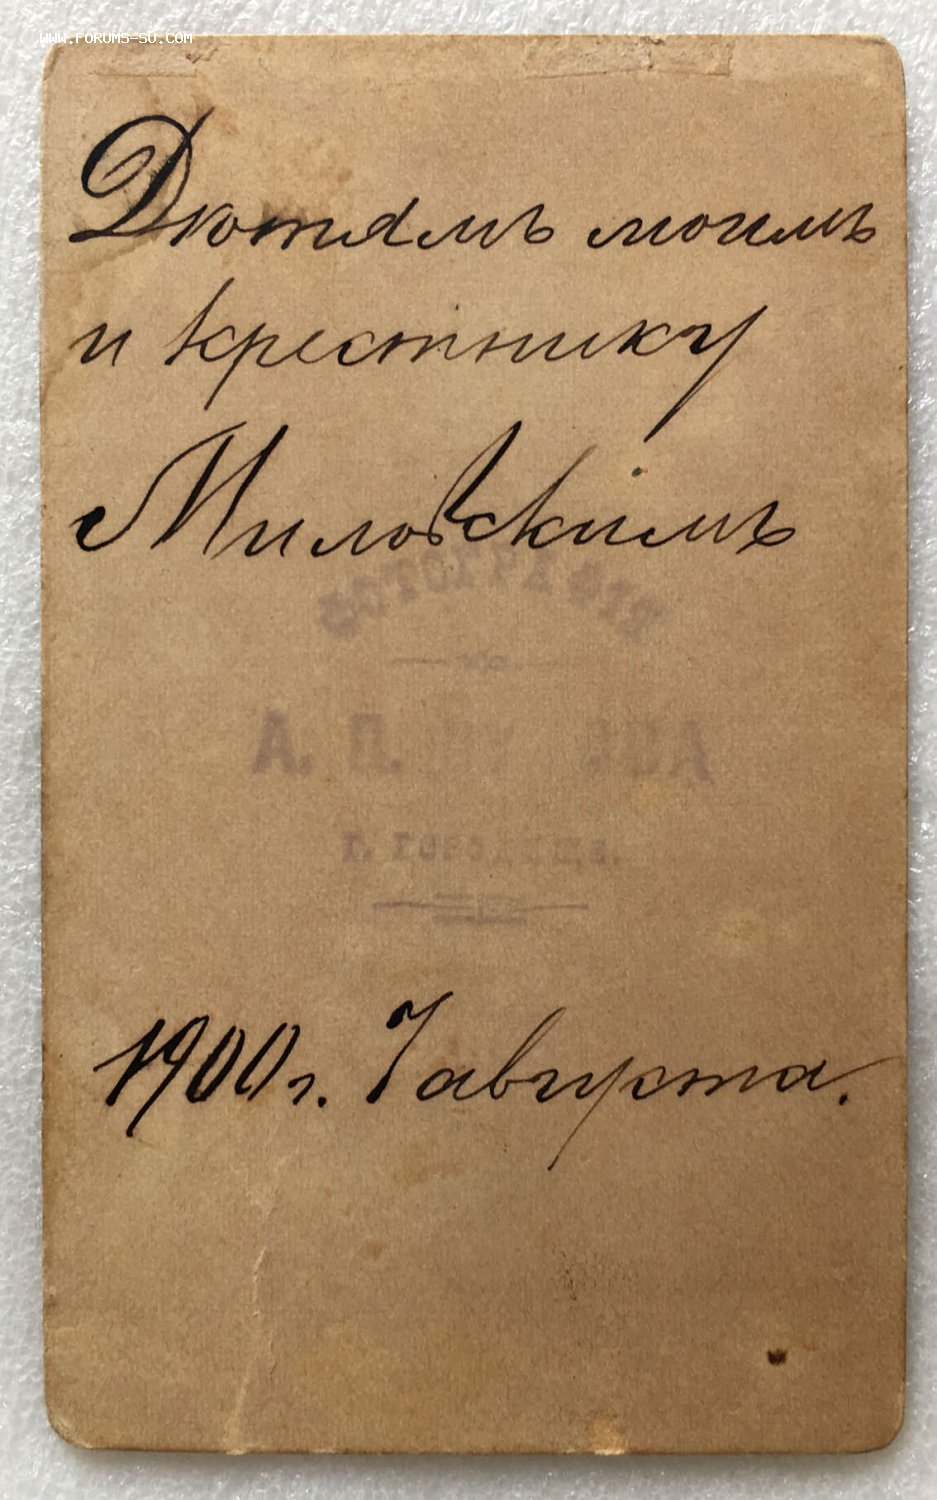 WWW.FORUMS-SU.COM
Дѣтямъ моимъ
и крестнику
Миловскимъ
ФОТОГРАФІЯ
А. П.
Г. ГОРОДИЩЕ.
1900 г. 7 августа.